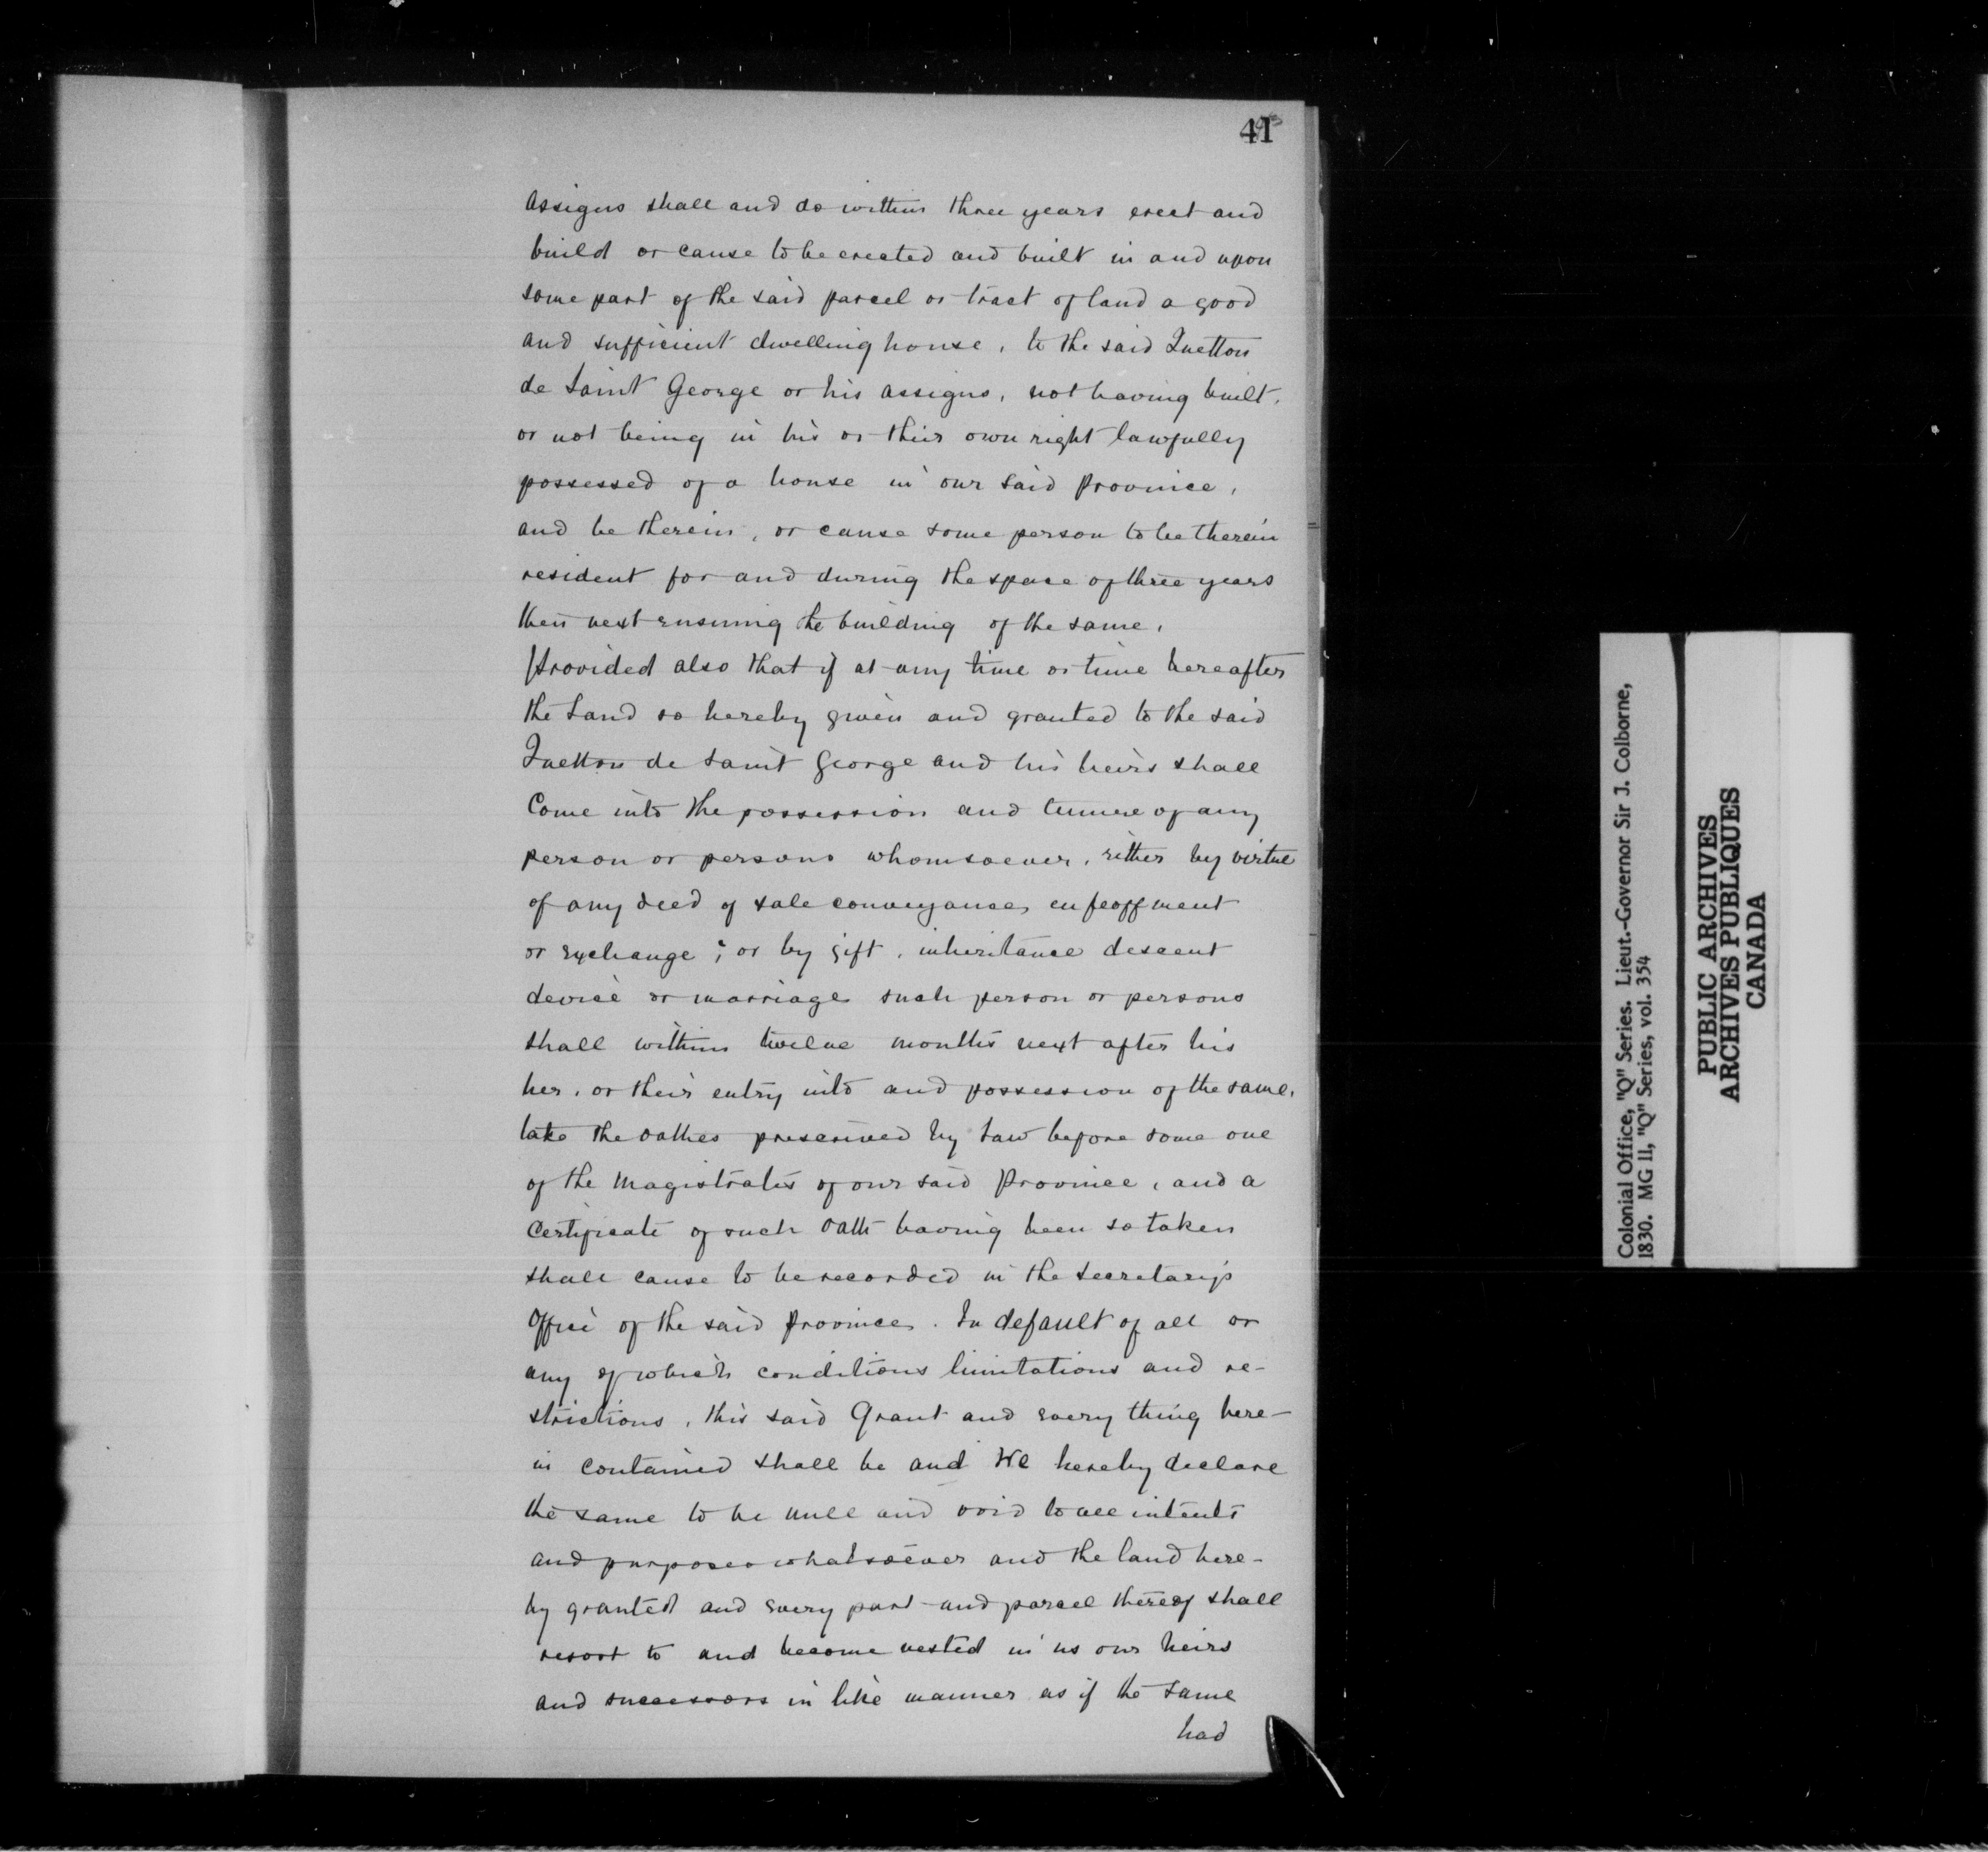 41
Assigns shall and do within three years erect and
build or cause to be erected and built in and upon
some part of the said parcel or tract of land a good
and sufficient dwelling house, to the said Quetton
de Saint George or his assigns, not having built,
or not being in his or their own right lawfully
possessed of a house in our said Province,
and be therein, or cause some person to be therein
resident for and during the space of three years
then next ensuing the building of the same,
Provided also that if at any time or time hereafter
the Land so hereby given and granted to the said
Quetton de Saint George and his heirs shall
Come into the possession and tenure of any
person or persons whomsoever, either by virtue
of any deed of sale conveyance, enfeoffment
or exchange; or by gift, inheritance descent
devise or marriage such person or persons
shall within twelve months next after his
her, or their entry into and possession of the same,
take the oathes prescrived by Law before some one
of the Magistrates of our said Province, and a
Certificate of such Oath having been so taken
shall cause to be recorded in the Secretary's
Office of the said Province. In default of all or
any of which conditions limitations and re-
strictions, this said Grant and every thing here-
in contained shall be and We hereby declare
the same to be null and void to all intents
and purposes whatsoever and the land here-
by granted and every part and parcel thereof shall
resort to and become vested in us our heirs
and successors in like manner as if the same
had
Colonial Office, "Q" Series. Lieut.-Governor Sir J. Colborne,
1830. MG 11, "Q" Series, vol. 354
PUBLIC ARCHIVES
ARCHIVES PUBLIQUES
CANADA